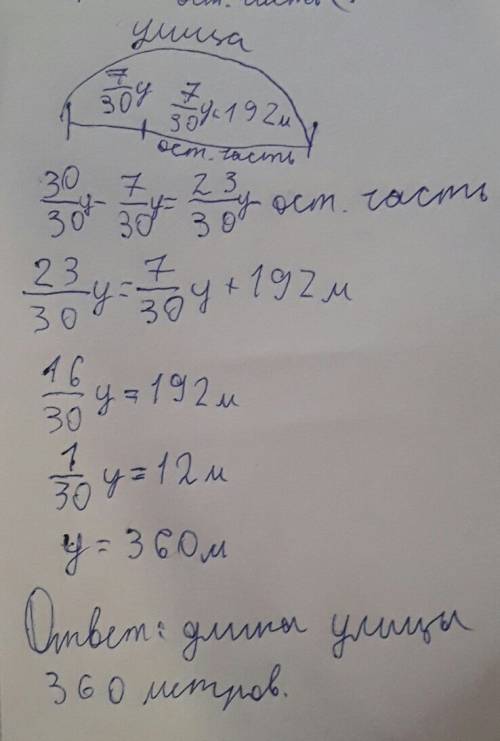 ост. часть (
улица
7/30 у 7/30 у+192м
ост. часть
30/30 у - 7/30 у = 23/30 у ост. часть
23/30 у = 7/30 у + 192 м
16/30 у = 192 м
1/30 у = 12 м
у = 360 м
Ответ: длина улицы
360 метров.